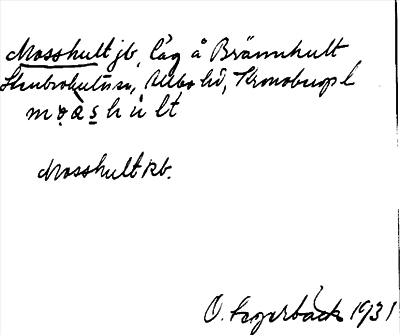 Mosshult jb, låg å Brännhult
Stenbrohults sn, Allbo hd, Kronobergs l
mo̤ås̲hùlt
Mosshult kb.
O. Fagerbäck 1931